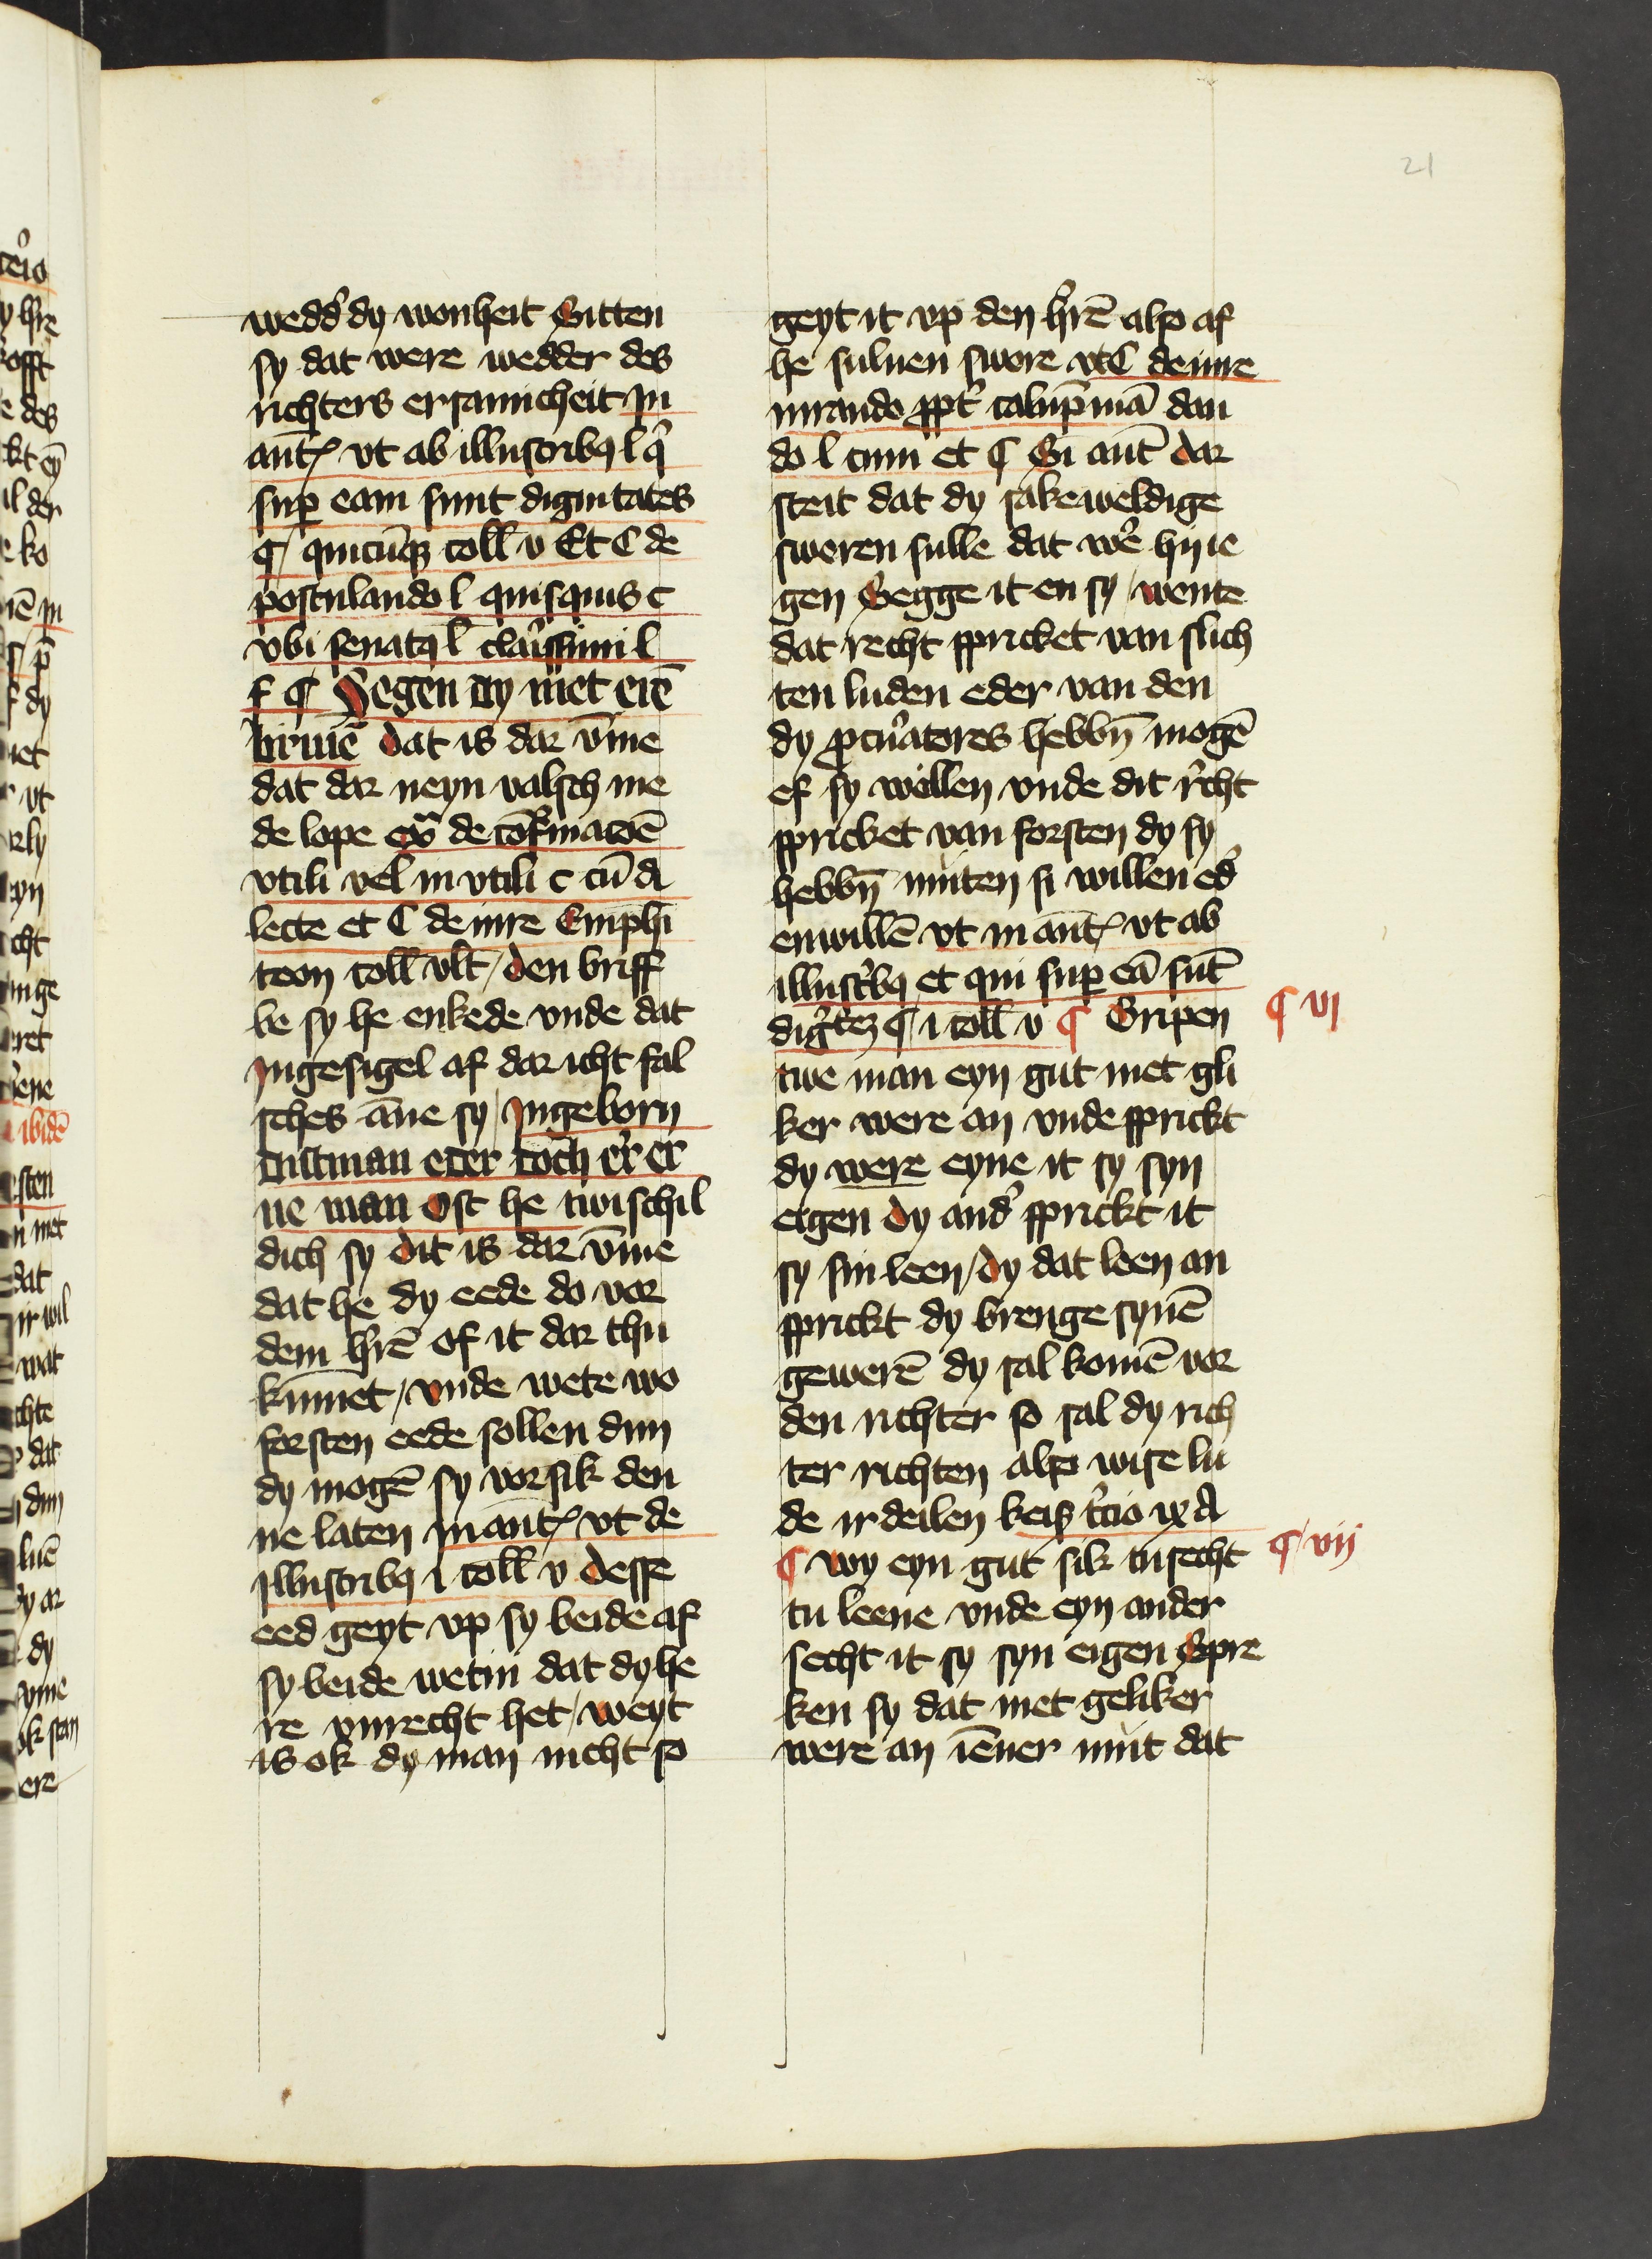 21
wedd̾ dy wonheit Sitten
sy dat were wedder des
richters ersamicheit In
aut̄ vt ab illustribꝯ l q̾
sup eam sunt dignitates
¶ quicūqꝫ coll̄ v Et C de
postulando l quisquis c
vbi senatꝯ l clar̾issimi l
f ¶ Segen dy met eiē
briuē Dat is dar vm̄e
dat dar neyn valsch me
de lope ex̄ de cōfirmacōē
vtili vel in vtili c cū di
lecte et C de iure Emphi
teon coll̄ vlt̄ / Den briff
be sy he enkede vnde dat
Ingesigel af dar icht fal
sches ane sy / Ingeborn
dutman eder doch er̾ er
ne man Oft he twischil
dich sy Dit is dar vm̄e
dat he dy eede do vor
dem hr̄ē of it dar thu
kūmet / vnde wete wo
forsten eede sollen dun
dy mogē sy vor sik den
ne laten In aut̄ vt de
Illustribꝯ i coll̄ v Desse
eed geyt vp sy beide af
sy beide wetin dat dy he
re vnrecht het / weyt
is ok dy man nicht so
geyt it vp den hr̄ē also af
he suluen swore vt C de iure
iurando ꝓpt̾ calūpniā dan
do l cum et ¶ Si aut̄ Dar
steit dat dy sakeweldige
sweren sulle dat we̾ hy ie
gen Segge it en sy / wente
dat recht spricket van slich
ten luden eder van den
dy ꝓcu̾atores hebbn̄ mogē
ef sy wollen vnde dit r̾cht
spricket van forsten dy sy
hebbn̄ muten si willen ed̾
enwillē vt in aut̄ vt ab
illust̾bꝯ et qui sup eā sūt
dig̾tꝫ ¶ i coll̄ v ¶ Gripen
¶ vi
twe man eyn gut met gli
ker were an vnde sprickt
dy were eyne it sy syn
eigen Dy and̾ sprickt it
sy sin leen / Dy dat leen an
sprickt dy brenge synē
gewerē dy sal komē vor
den richter so sal dy rich
ter richten also wise lu
de ir deilen keiß t̾cio ix A
¶ wy eyn gut sik tusecht
¶ vij
tu leene vnde eyn ander
secht it sy syn eigen Spre
ken sy dat met geliker
were an iēner mut dat